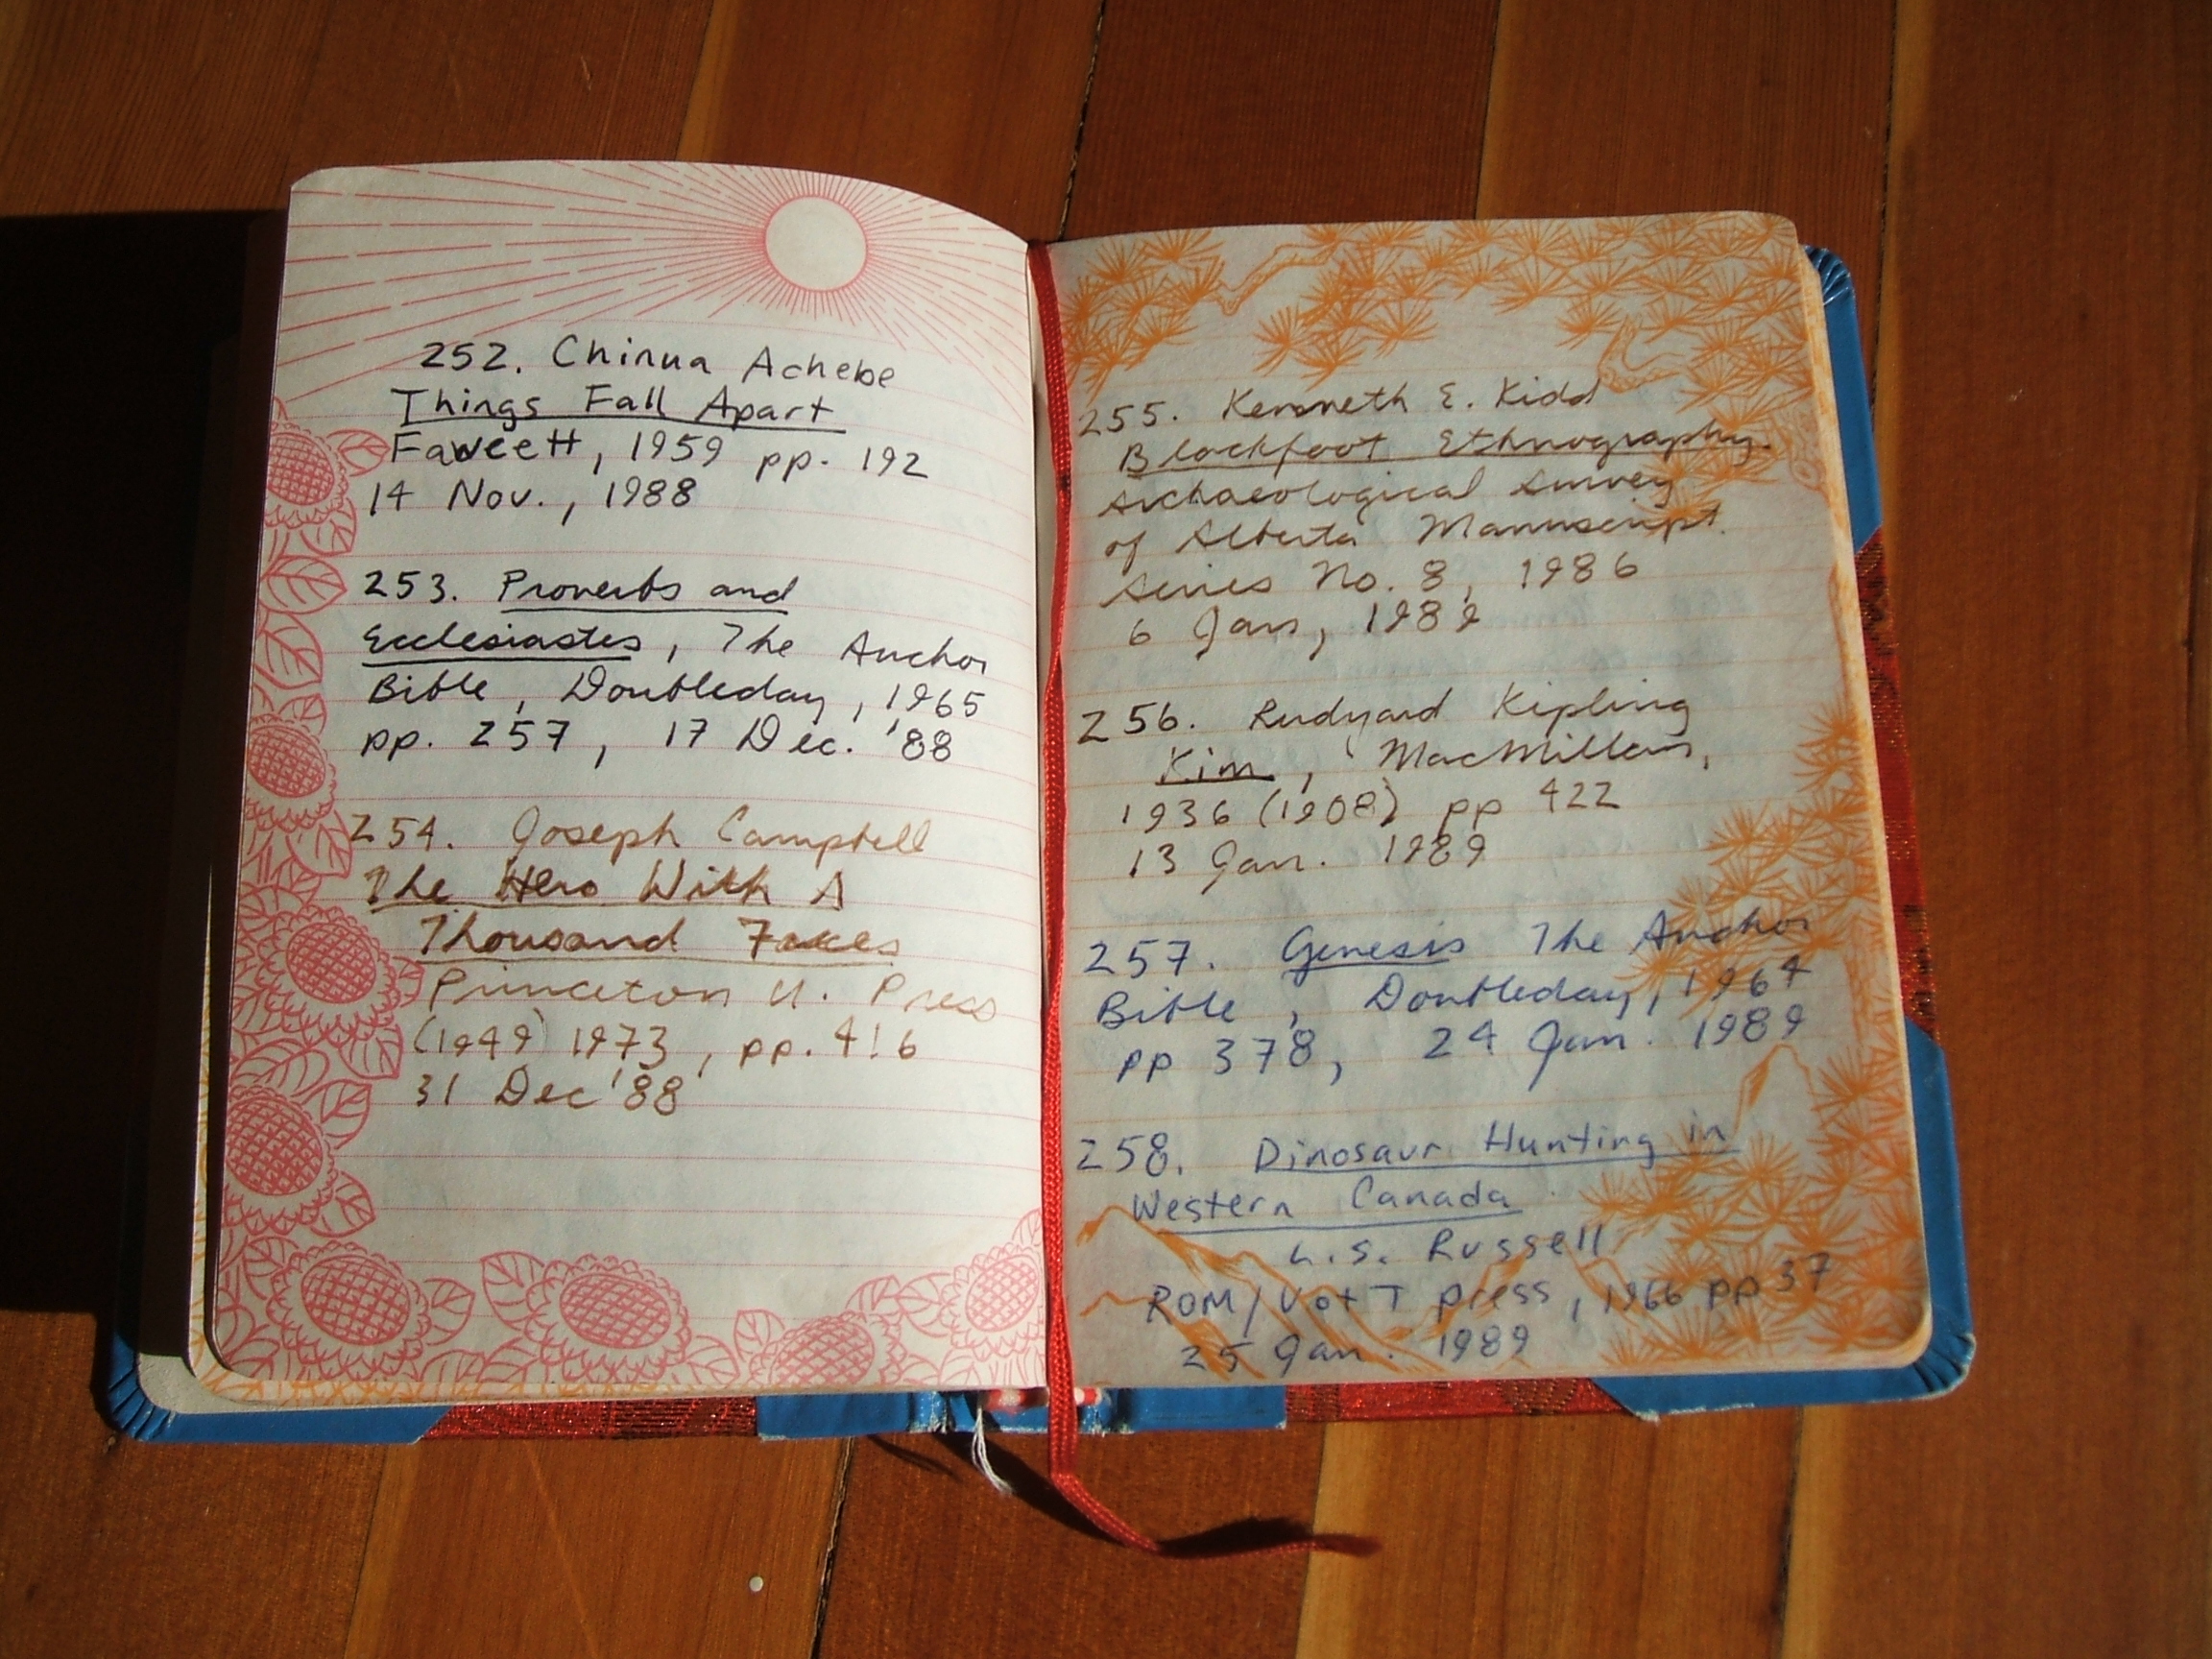 252. Chinua Achebe
Things Fall Apart
Fawcett, 1959 pp. 192
14 Nov., 1988
253. Proverbs and
Ecclesiastes, The Anchor
Bible, Doubleday, 1965
pp. 257, 17 Dec. '88
254. Joseph Campbell
The Hero With A
Thousand Faces
Princeton U. Press
(1949) 1973, pp. 416
31 Dec '88
255. Kenneth E. Kidd
Blackfoot Ethnography.
Archaeological Survey
of Alberta Manuscript.
series No. 8, 1986
6 Jan, 1989
256. Rudyard Kipling
Kim, MacMillan,
1936 (1908) pp 422
13 Jan. 1989
257. Genesis The Anchor
Bible, Doubleday, 1964
pp 378, 24 Jan. 1989
258. Dinosaur Hunting in
Western Canada
L.S. Russell
ROM/U of T press, 1966 pp 37
25 Jan. 1989